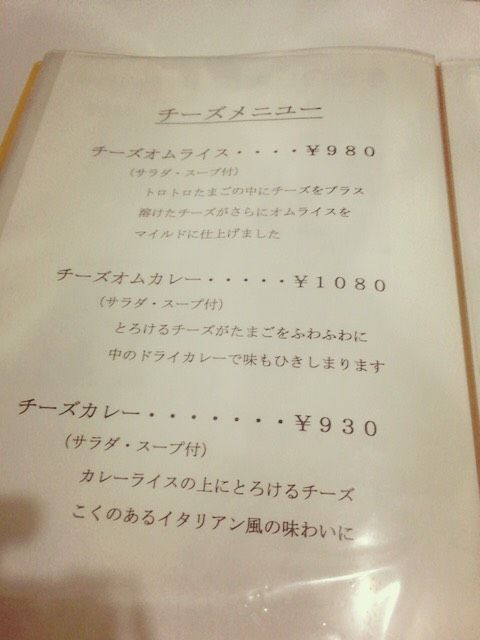 チーズメニュー
チーズオムライス・・・・￥９８０
（サラダ・スープ付）
トロトロたまごの中にチーズをプラス
溶けたチーズがさらにオムライスを
マイルドに仕上げました
チーズオムカレー・・・・・￥１０８０
（サラダ・スープ付）
とろけるチーズがたまごをふわふわに
中のドライカレーで味もひきしまります
チーズカレー・・・・・・・￥９３０
（サラダ・スープ付）
カレーライスの上にとろけるチーズ
こくのあるイタリアン風の味わいに